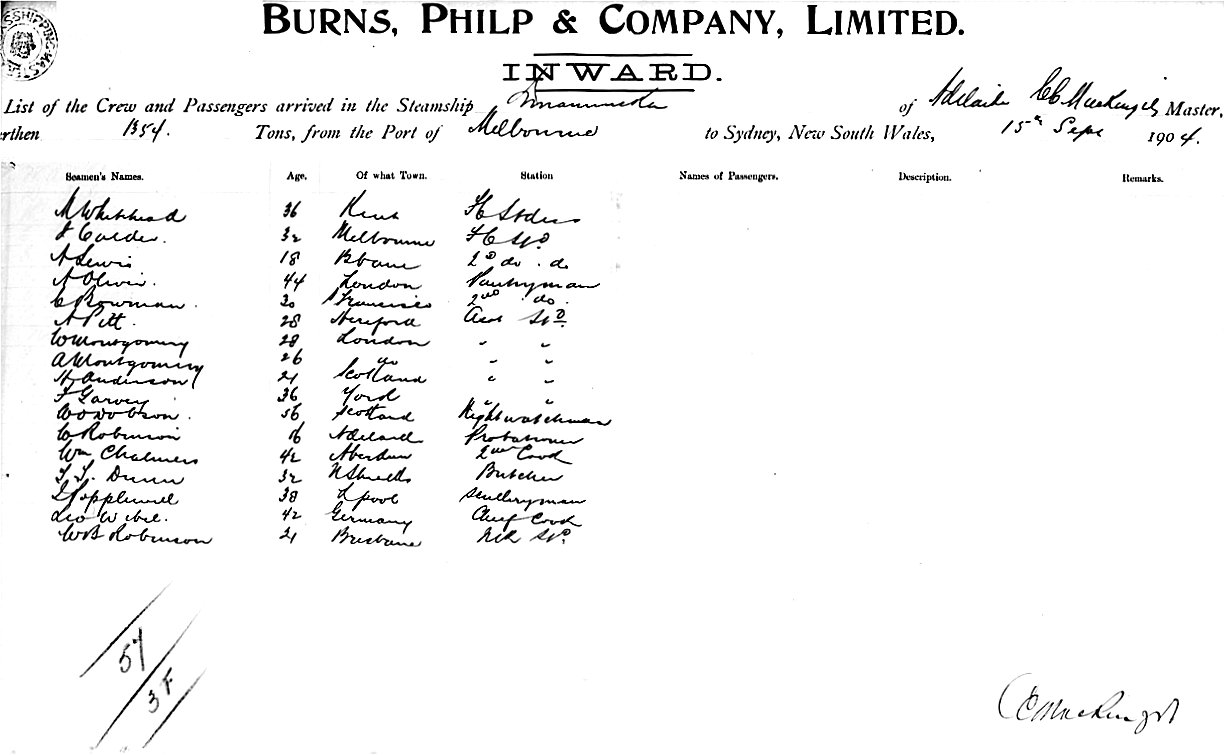 SHIPPING MASTER
BURNS, PHILP & COMPANY, LIMITED.
INWARD.
List of the Crew and Passengers arrived in the Steamship of Adelaide C C MacKenzie Master,
rthen 1354. Tons, from the Port of Melbourne to Sydney, New South Wales, 15th Sept 1904.
Seamen's Names. Age. Of what Town. Station Names of Passengers. Description. Remarks.
M Whitehead 36 Kent
J Calder. 32 Melbourne
A Lewis 18 Bbane 2D do . do
A Olivir. 44 London Pantryman
C Bowman. 30 Francisco 2nd do.
A Pitt. 28 Hereford Asst StD.
W Montgomery 28 London " "
A Montgomery 26 do " "
H Anderson 21 Scotland " "
F Garvey 36 York " "
W O Dobson. 56 Scotland Nightwatchman
C Robinson 16 Adelaide Probationer
Wm Chalmers 42 Aberdeen 2nd Cook
Dunn 32 N Shields Butcher
Popplewell 38 Lpool Sculleryman
Leo Wibel. 42 Germany Chief Cook
W B Robinson 21 Brisbane
57
3F
C C MacKenzie